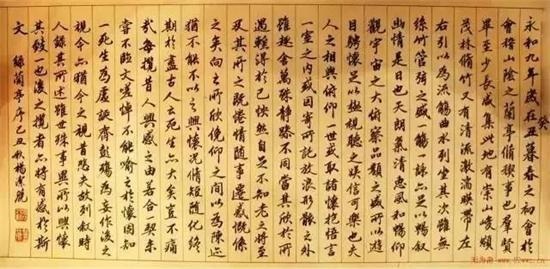 永和九年歲在癸丑暮春之初會於
會稽山陰之蘭亭脩稧事也群賢
畢至少長咸集此地有崇山峻領
茂林脩竹又有清流激湍暎帶左
右引以為流觴曲水列坐其次雖無
絲竹管弦之盛一觴一詠亦足以暢敘
幽情是日也天朗氣清惠風和暢仰
觀宇宙之大俯察品類之盛所以遊
目騁懷足以極視聽之娛信可樂也夫
人之相與俯仰一世或取諸懷抱悟言
一室之內或因寄所託放浪形骸之外
雖趣舍萬殊靜躁不同當其欣於所
遇暫得於己快然自足不知老之將至
及其所之既惓情隨事遷感慨係
之矣向之所欣俛仰之間以為陳迹
猶不能不以之興懷況脩短隨化終
期於盡古人云死生亦大矣豈不痛
哉每攬昔人興感之由若合一契未
嘗不臨文嗟悼不能喻之於懷固知
一死生為虛誕齊彭殤為妄作後之
視今亦猶今之視昔悲夫故列敘時
人錄其所述雖世殊事異所以興懷
其致一也後之攬者亦將有感於斯
文 錄蘭亭序己丑秋楊